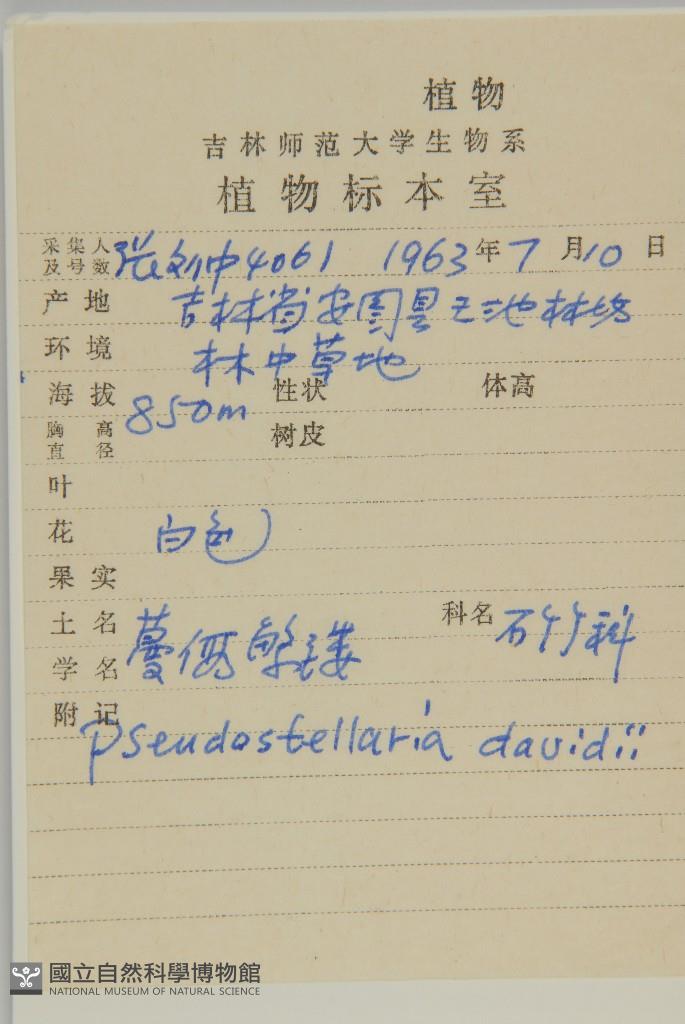 植物
吉林师范大学生物系
植物标本室
采集人及号数 张 4061 1963年7月10日
产地 吉林省安图县 池林场
环境 林中草地
海拔 850m 性状 体高
胸高直径 树皮
叶
花 白色
果实
土名 蔓假繁缕 科名 石竹科
学名
附记 Pseudostellaria davidii
國立自然科學博物館
NATIONAL MUSEUM OF NATURAL SCIENCE